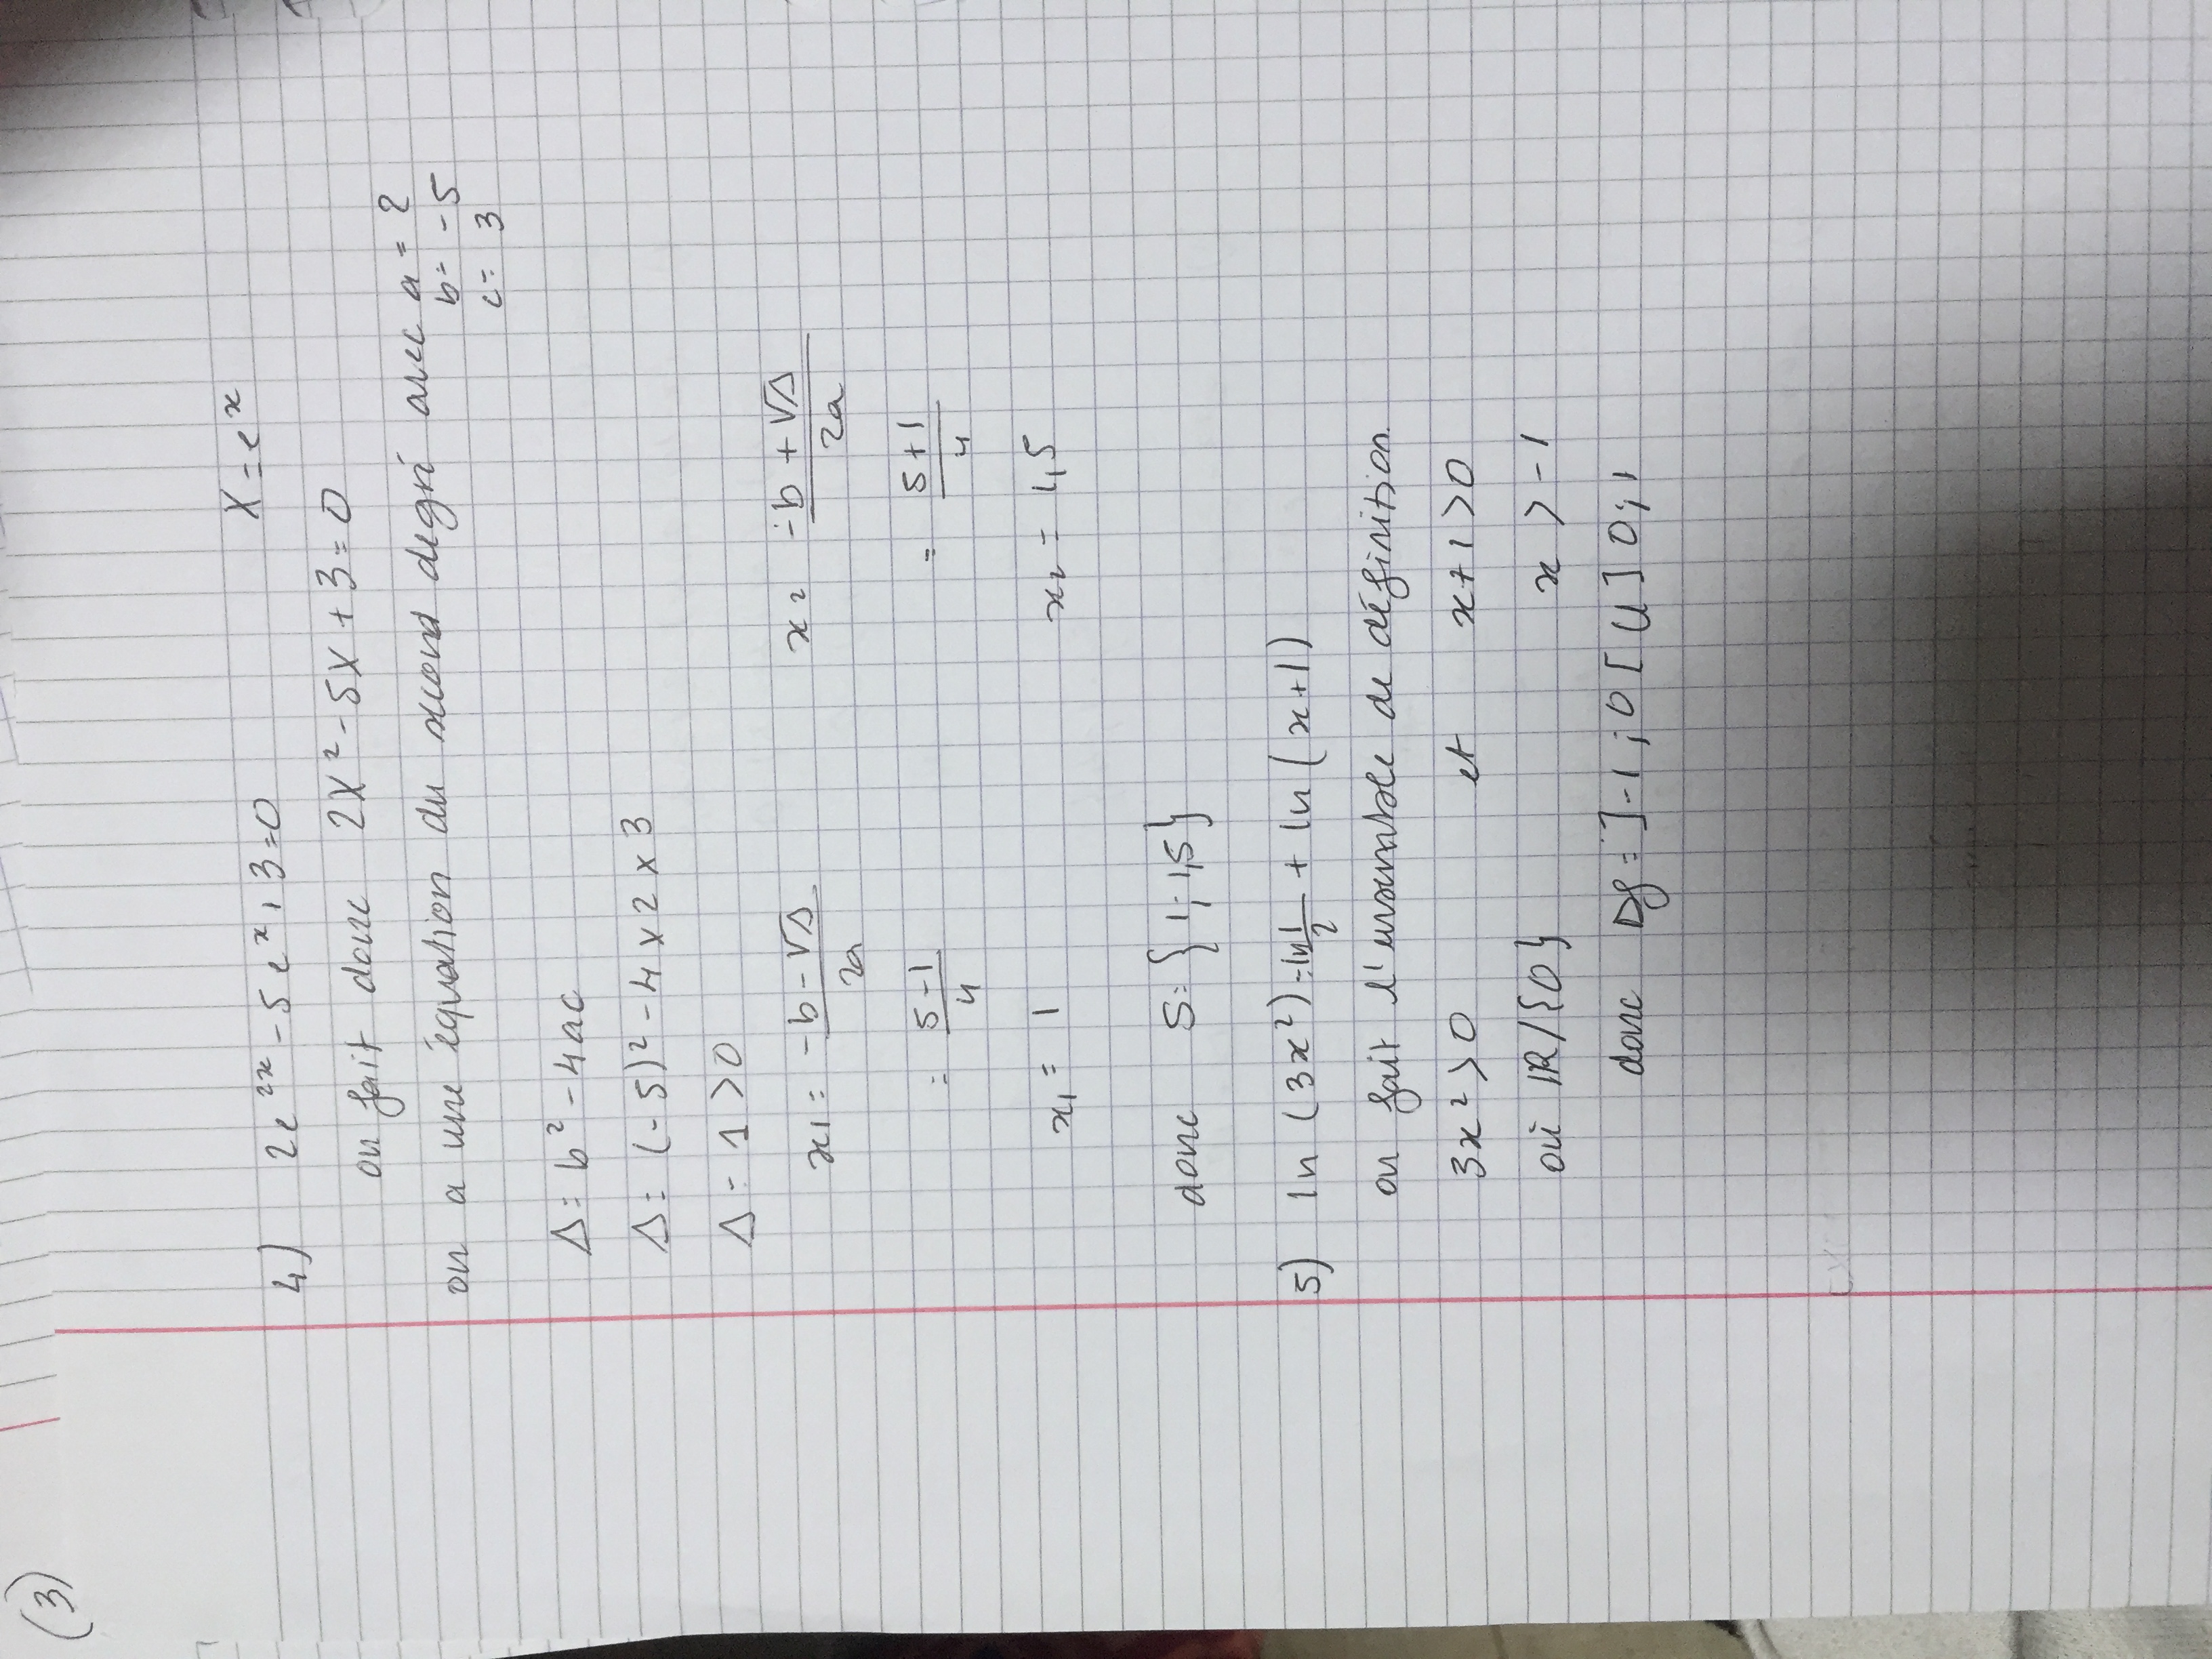 (3)
X = e^x
4) 2e^2x - 5e^x + 3 = 0
on fait donc 2X² - 5X + 3 = 0
on a une équation du second degré avec a = 2
b = -5
c = 3
Δ = b² - 4ac
Δ = (-5)² - 4 x 2 x 3
Δ - 1 > 0
x1 = (-b - √Δ) / 2a x2 (-b + √Δ) / 2a
= (5 - 1) / 4 = (5 + 1) / 4
x1 = 1 x2 = 1,5
donc S = {1; 1,5}
5) ln (3x²) = ln 1/2 + ln (x+1)
on fait l'ensemble de définition.
3x² > 0 et x + 1 > 0
où IR/{0} x > -1
donc Df = ]-1 ; 0 [ U ] 0 ; 1